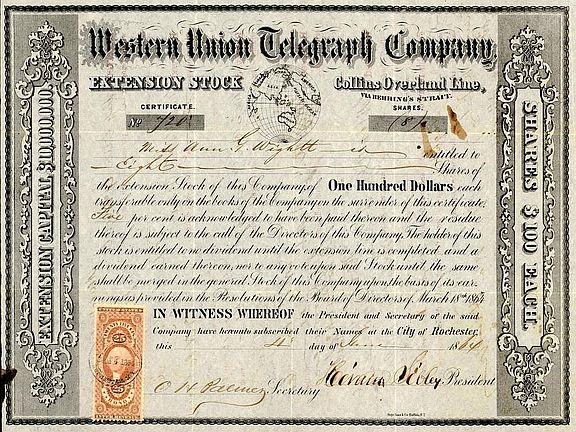 Western Union Telegraph Company,
EXTENSION STOCK
Collins Overland Line,
VIA BEHRING'S STRAIT.
CERTIFICATE.
SHARES.
No 720
(8)
EXTENSION CAPITAL $10,000,000
SHARES $100 EACH.
Miss Ann G. is entitled to
Eight Shares of
the Extension Stock of this Company, of One Hundred Dollars each
transferable only on the books of the Company on the surrender of this certificate.
Five per cent is acknowledged to have been paid thereon and the residue
thereof is subject to the call of the Directors of this Company. The holder of this
stock is entitled to no dividend until the extension line is completed, and a
dividend earned thereon, nor to any vote upon said Stock until the same
shall be merged in the general Stock of this Company upon the basis of its ear-
nings as provided in the Resolutions of the Board of Directors of March 18th 1864
IN WITNESS WHEREOF the President and Secretary of the said
Company have hereunto subscribed their Names at the City of Rochester,
this 4th day of June 1864
O H Palmer Secretary
Hiram Sibley President
25